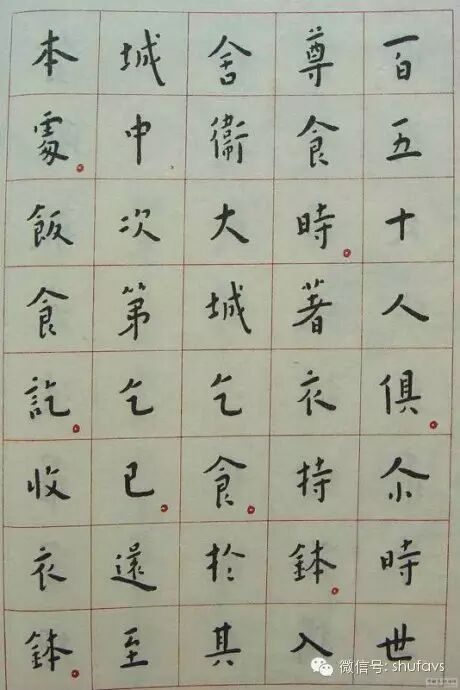 百五十人俱。尒時世
尊食時。著衣持鉢。入
舍衛大城乞食。於其
城中次第乞已。還至
本處。飯食訖。收衣鉢。
微信号: shufavs